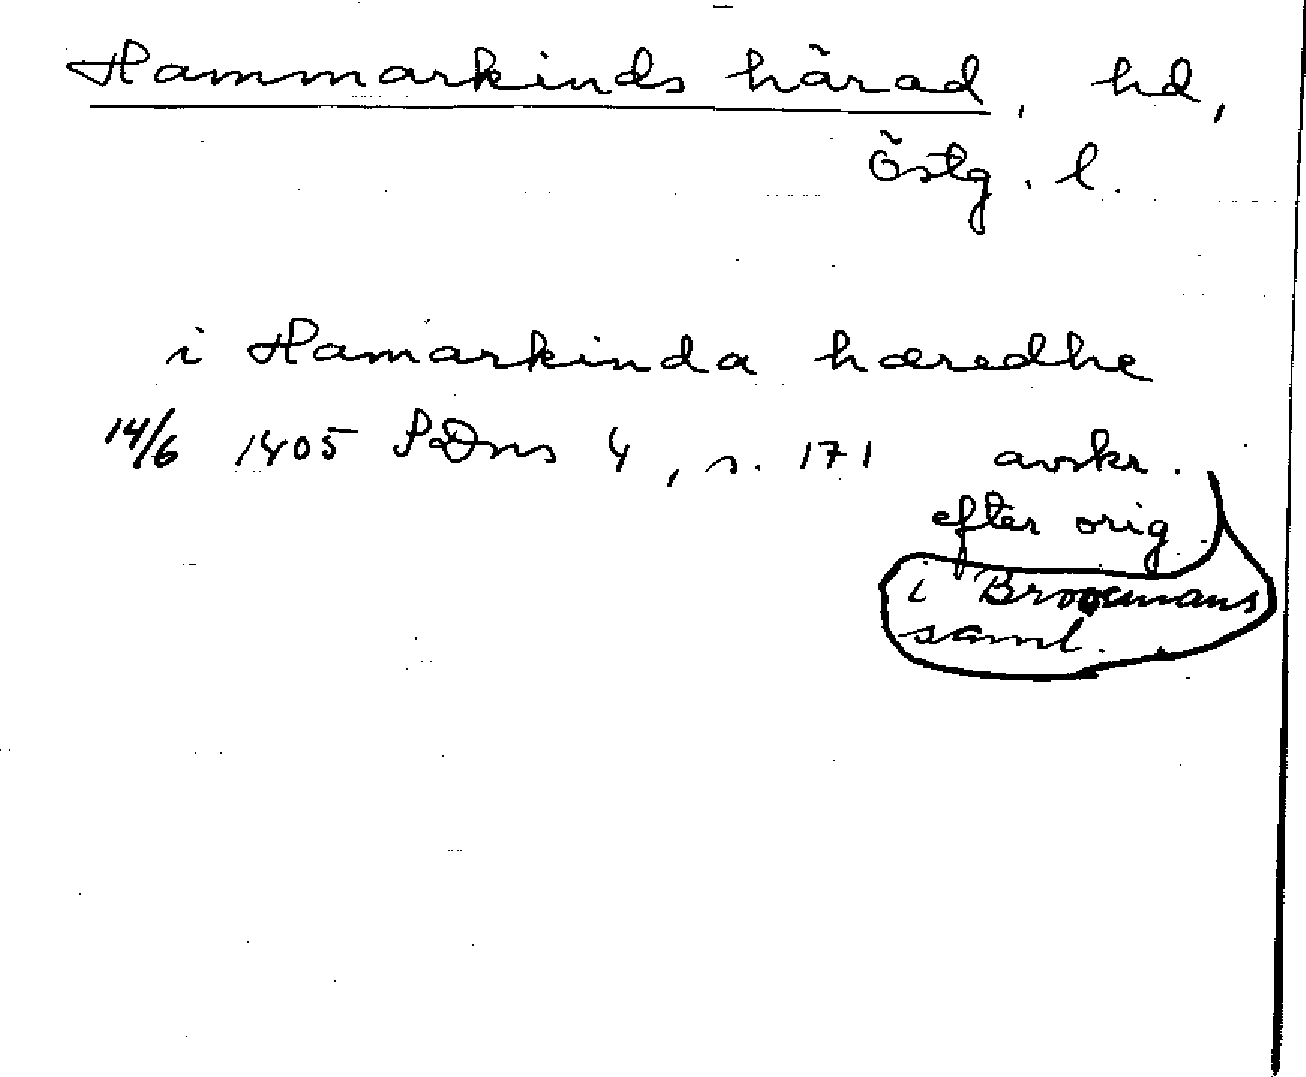 Hammarkinds härad, hd,
Östg. l.
i Hamarkinda hæredhe
14/6 1405 SDns 4, s. 171 avskr.
efter orig
i Broocmans
saml.